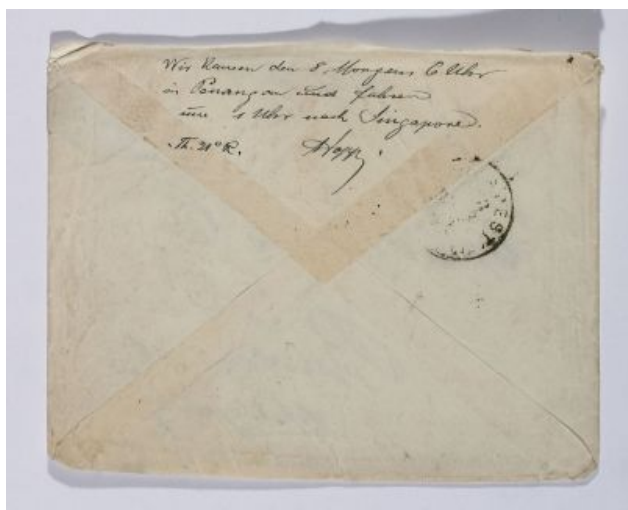 Wir kamen den 8. Morgens 6 Uhr
in Penang an und fahren
um 1 Uhr nach Singapore.
Th. 21° R. Hopp
EST